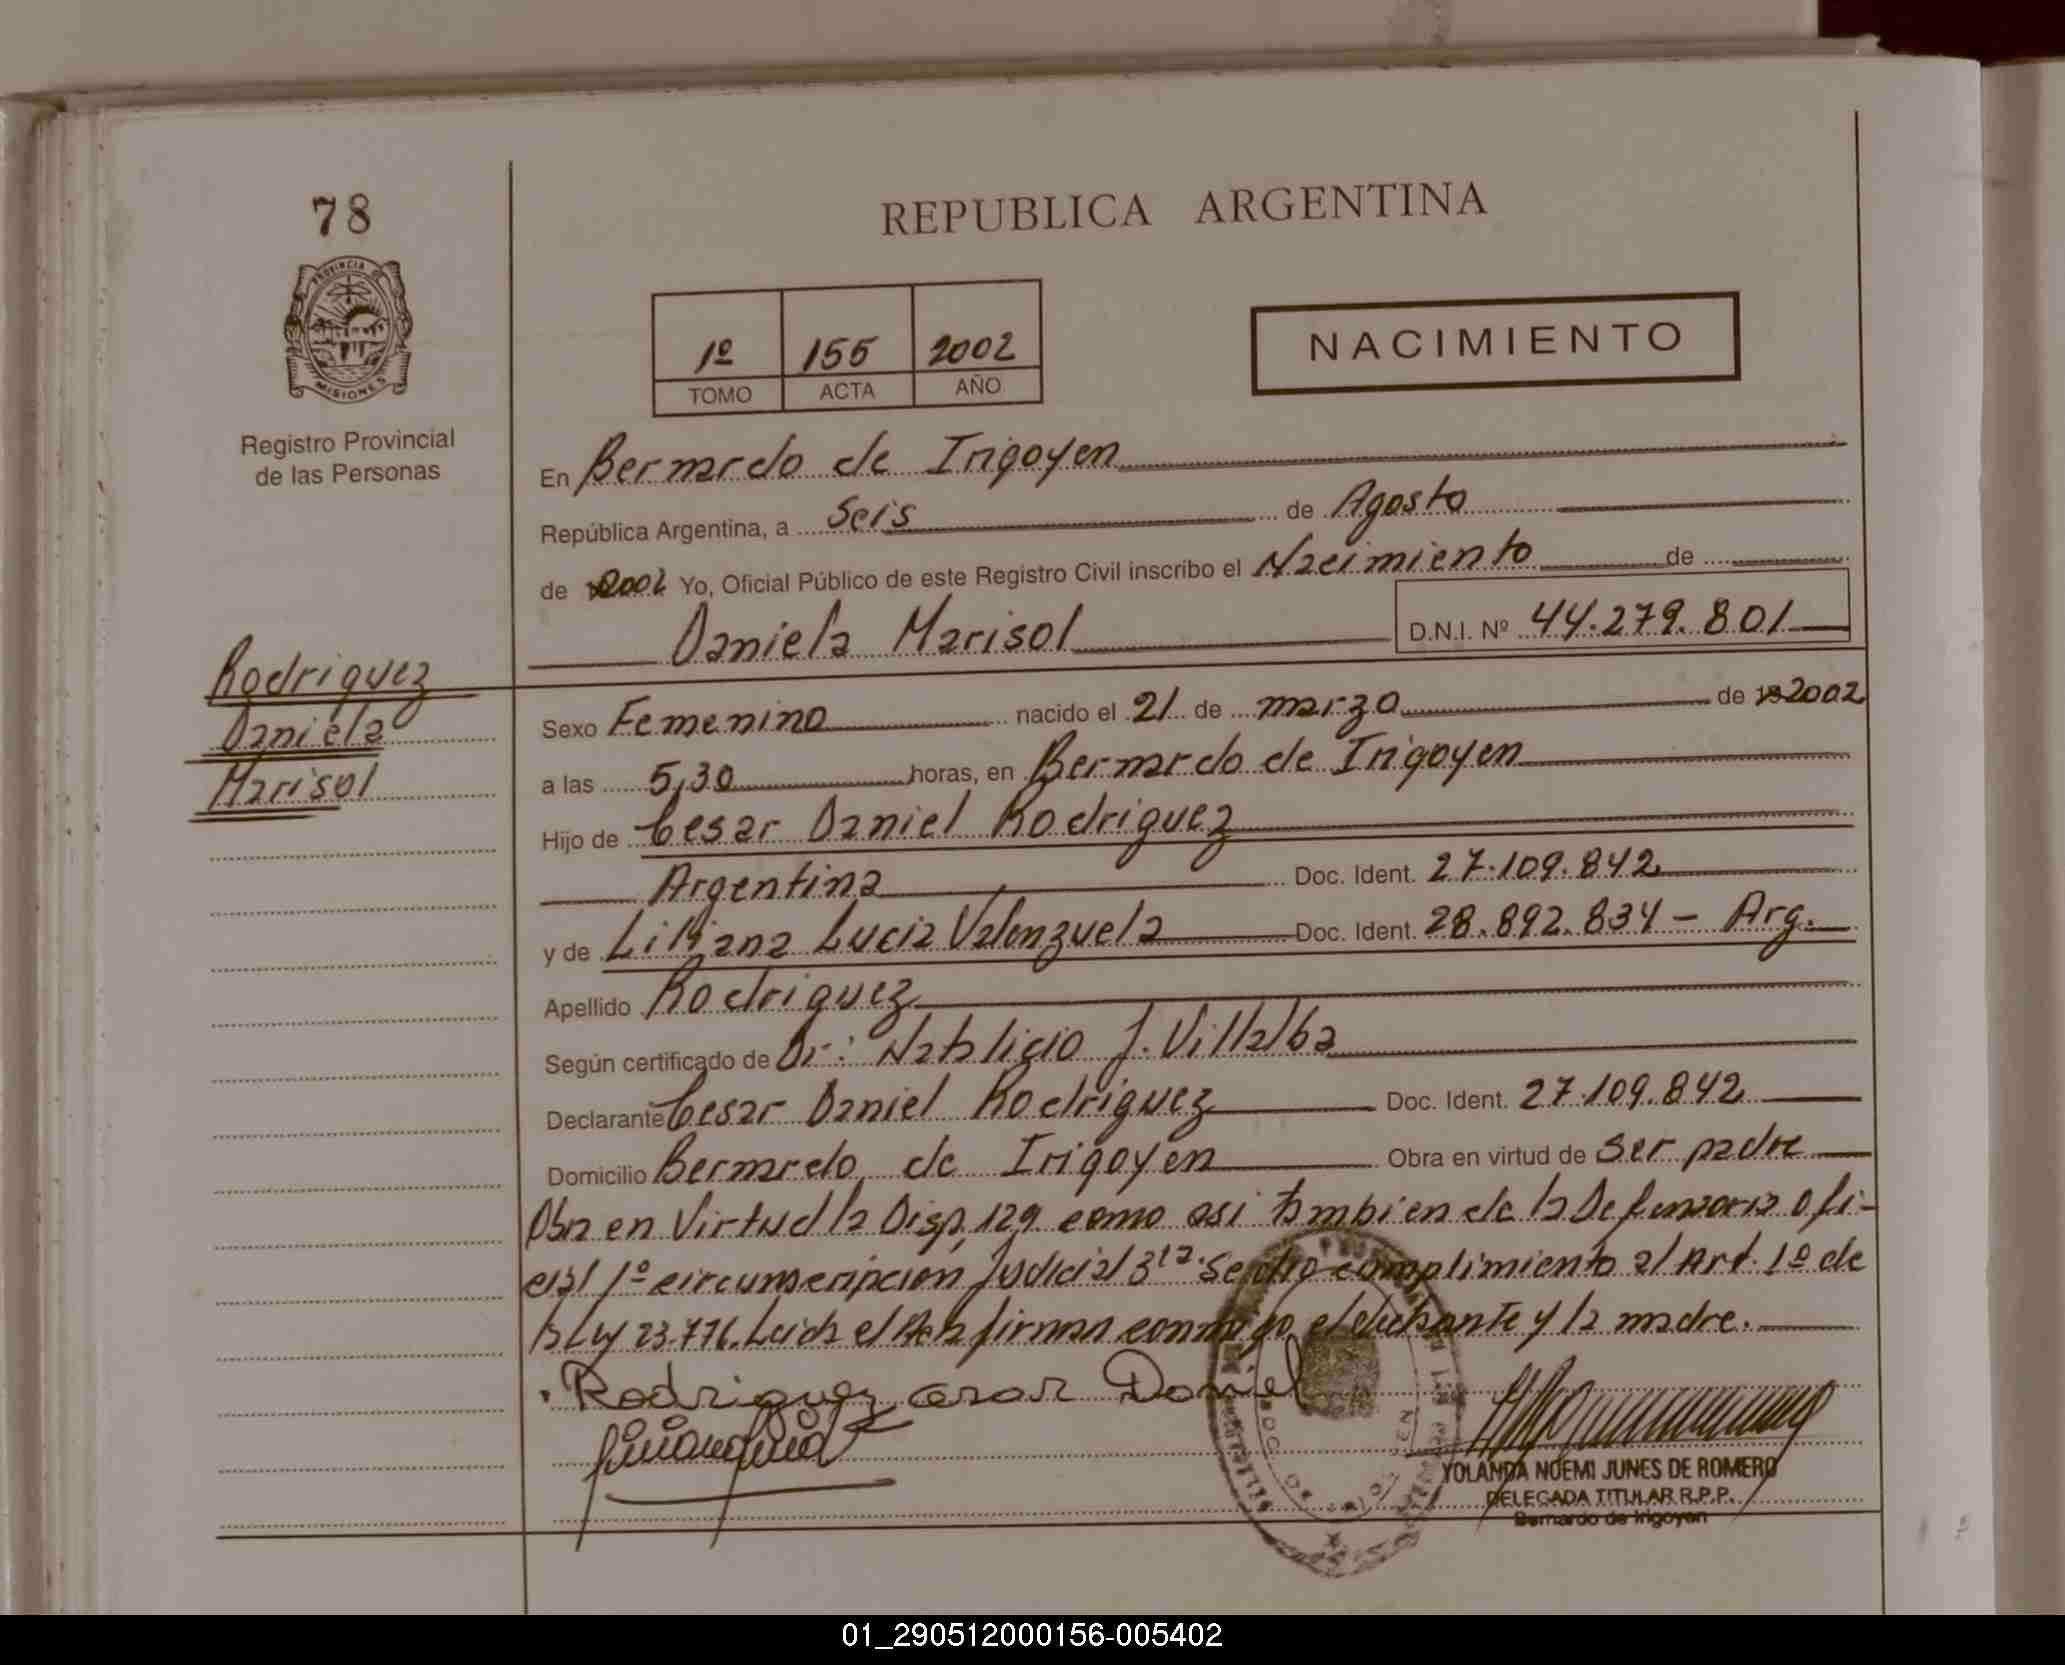 78
REPUBLICA ARGENTINA
PROVINCIA DE
MISIONES
Registro Provincial
de las Personas
1º 155 2002
TOMO ACTA AÑO
NACIMIENTO
En Bernardo de Irigoyen
República Argentina, a Seis de Agosto
de 2002 Yo, Oficial Público de este Registro Civil inscribo el Nacimiento de
Daniela Marisol D.N.I. Nº 44.279.801
Rodriguez
Daniela
Marisol
Sexo Femenino nacido el 21 de marzo de 2002
a las 5,30 horas, en Bernardo de Irigoyen
Hijo de Cesar Daniel Rodriguez
Argentina Doc. Ident. 27.109.842
y de Liliana Lucia Valenzuela Doc. Ident. 28.892.834 - Arg.
Apellido Rodriguez
Según certificado de Dr: Natalicio J. Villalba
Declarante Cesar Daniel Rodriguez Doc. Ident. 27.109.842
Domicilio Bernardo de Irigoyen Obra en virtud de ser padre
Obra en Virtud la Disp. 129 como asi tambien de la Defensoria ofi-
cial 1º circunscripcion Judicial 3ra. Se dio cumplimiento al Art. 1º de
la Ley 23.776. Leida el Acta firman conmigo el declarante y la madre.
Rodriguez cesar Daniel
YOLANDA NOEMI JUNES DE ROMERO
DELEGADA TITULAR R.P.P.
Bernardo de Irigoyen
01_290512000156-005402